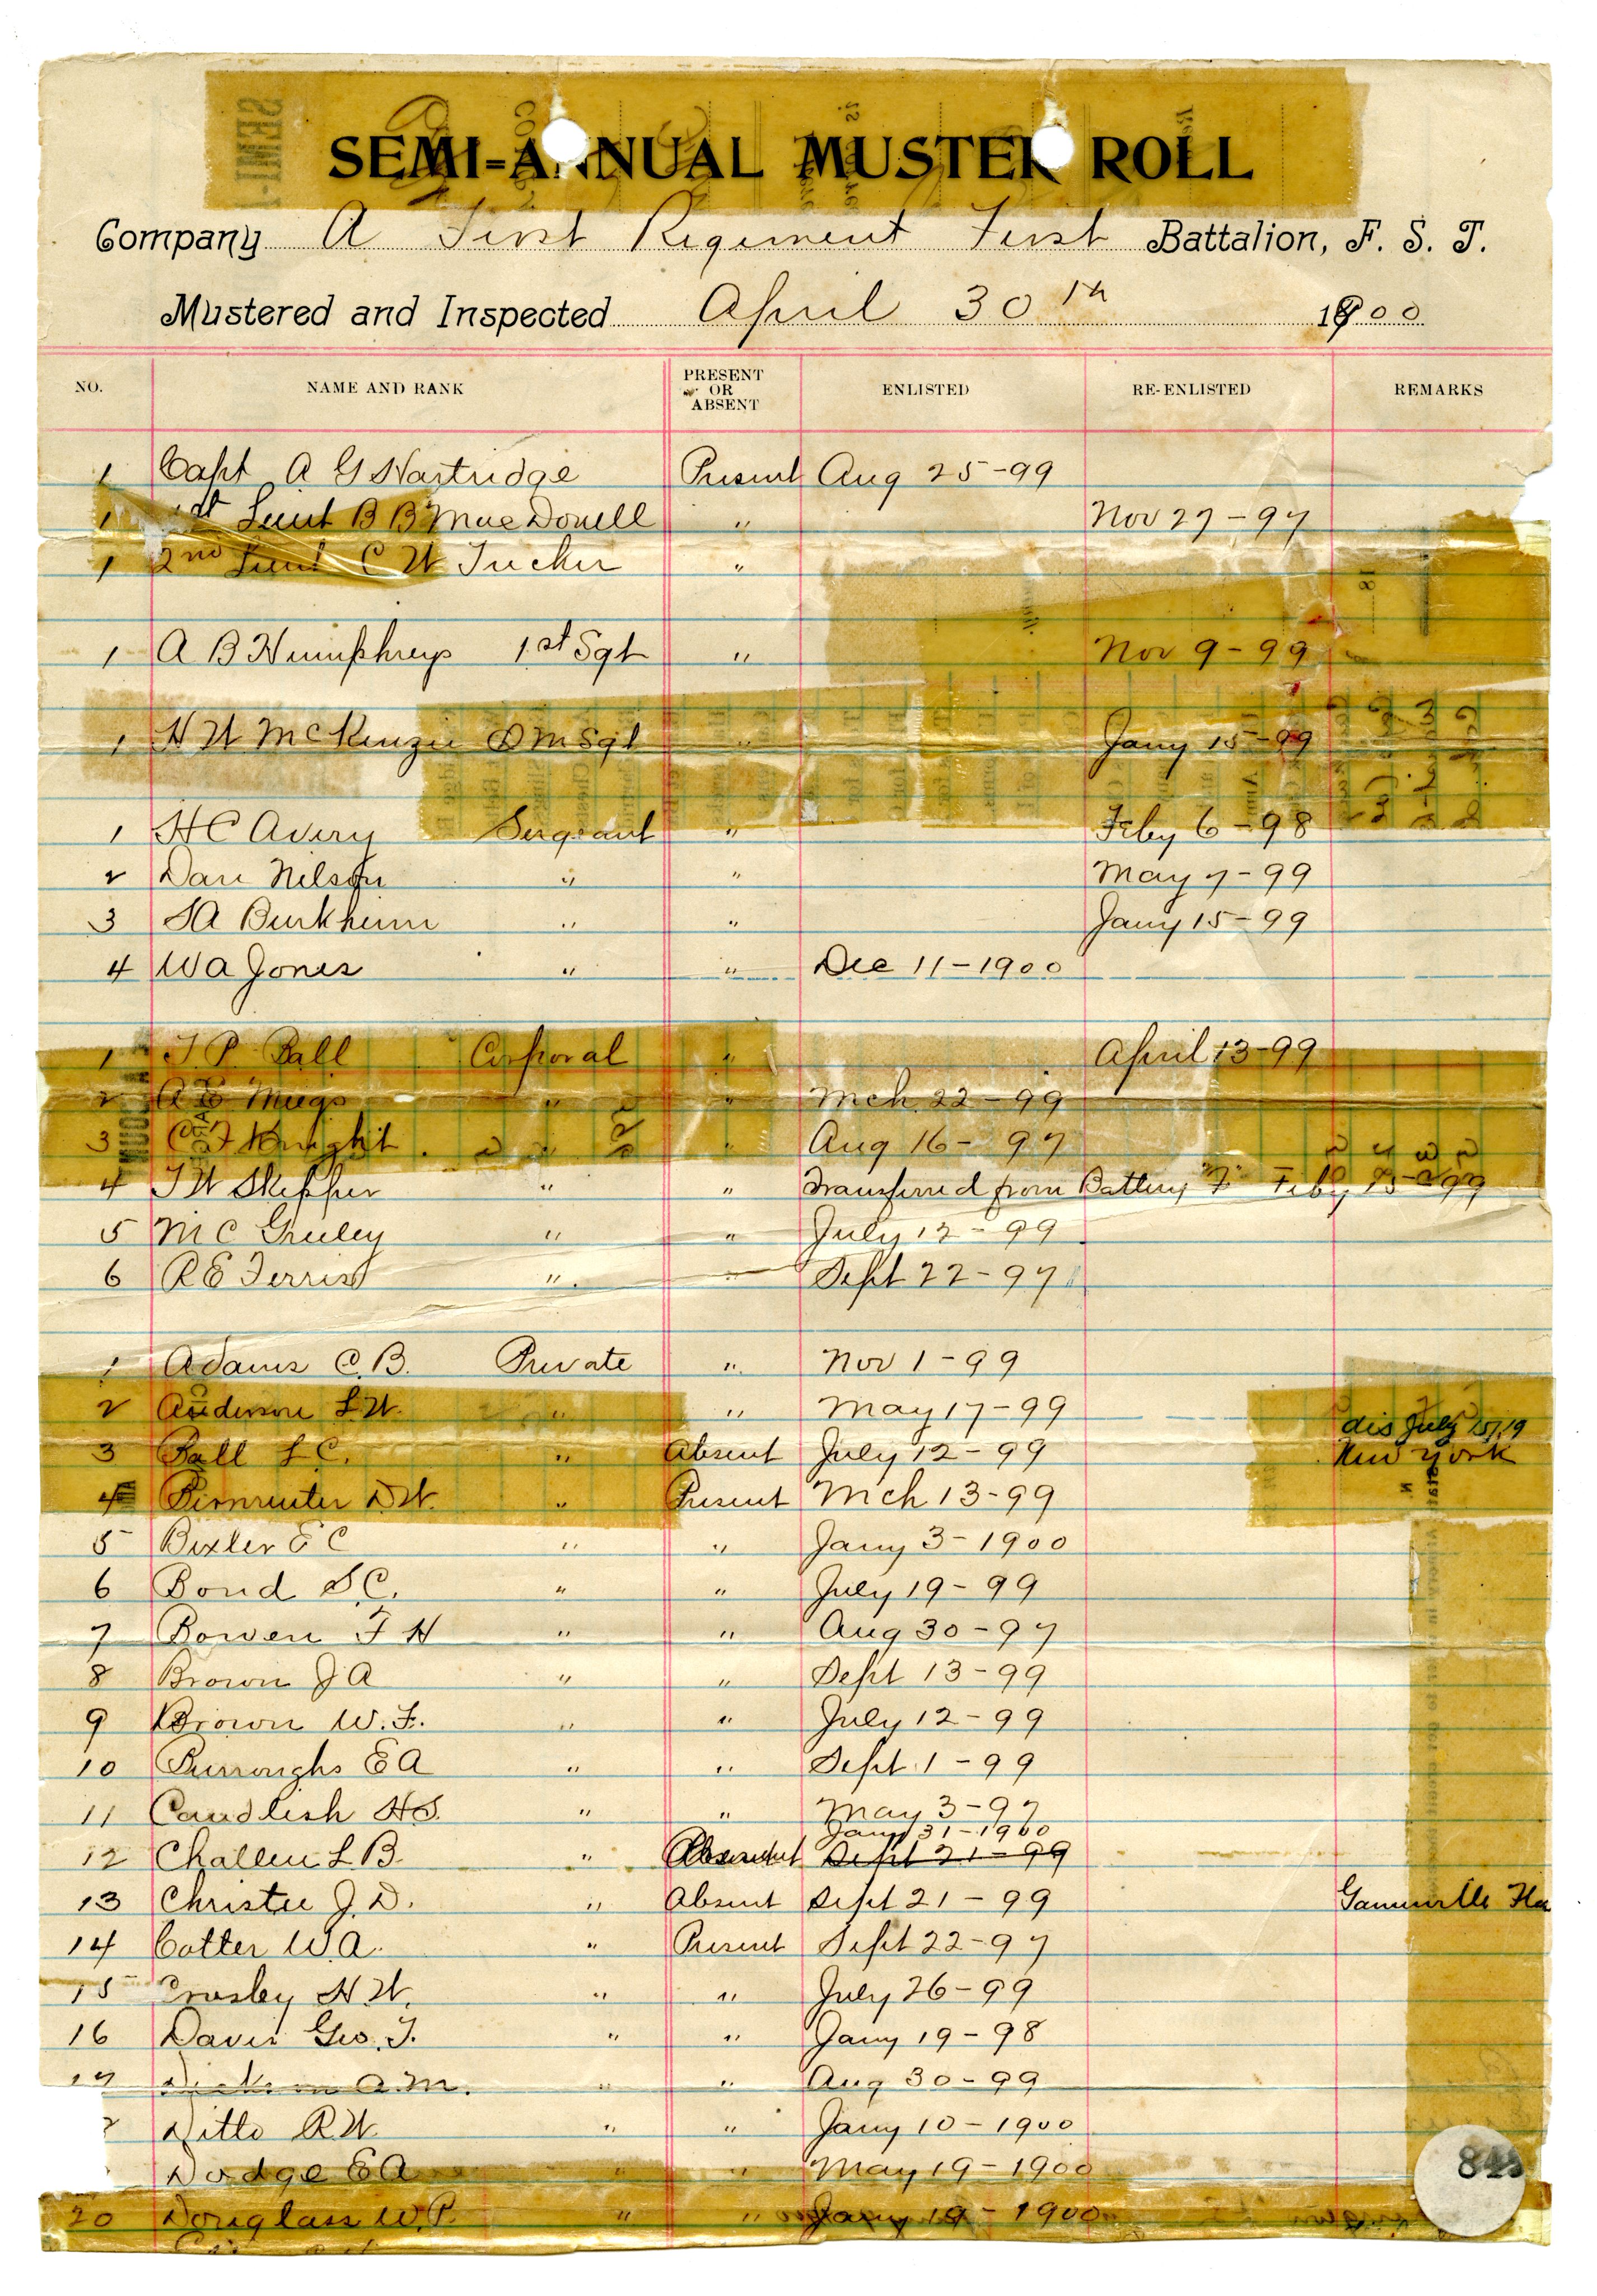 SEMI-ANNUAL MUSTER ROLL
Company A First Regiment First Battalion, F. S. T.
Mustered and Inspected April 30th 1900
NO. NAME AND RANK PRESENT OR ABSENT ENLISTED RE-ENLISTED REMARKS
1 Capt A G Hartridge Present Aug 25-99
1 1st Lieut B B MacDonell " Nov 27-97
1 2nd Lieut C W Tucker "
1 A B Humphreys 1st Sgt " Nov 9-99
1 H W McKenzie QM Sgt " Jany 15-99
1 H C Avery Sergeant " Feby 6-98
2 Dan Nilson " " May 7-99
3 SA Burkheim " " Jany 15-99
4 WA Jones " " Dec 11-1900
1 T P Ball Corporal " April 13-99
2 A E Meigs " " Mch 22-99
3 C F Knight " " Aug 16-97
4 T W Skipper " " Transferred from Battery "F" Feby 15-99
5 M C Greeley " " July 12-99
6 R E Ferris " " Sept 22-97
1 Adams C.B. Private " Nov 1-99
2 Anderson L.W. " " May 17-99
3 Ball L C. " Absent July 12-99 dis July 15/19 New York
4 D W. " Present Mch 13-99
5 Bixler E C " " Jany 3-1900
6 Bond S.C. " " July 19-99
7 Bowen F H " " Aug 30-97
8 Brown J A " " Sept 13-99
9 Brown W. F. " " July 12-99
10 Burroughs E A " " Sept 1-99
11 Candlish H S. " " May 3-97
Jany 31-1900
12 Challen L B. " Sept 21-99
13 Christie J. D. " Absent Sept 21-99 Gainesville Fla
14 Cotter W.A. " Present Sept 22-97
15 Crosby H.W. " " July 26-99
16 Davis Geo. T. " " Jany 19-98
17 Dickson A.M. " " Aug 30-99
Ditto R W " " Jany 10-1900
Dodge E A " " May 19-1900
20 Douglass W.P. " " Jany 19-1900